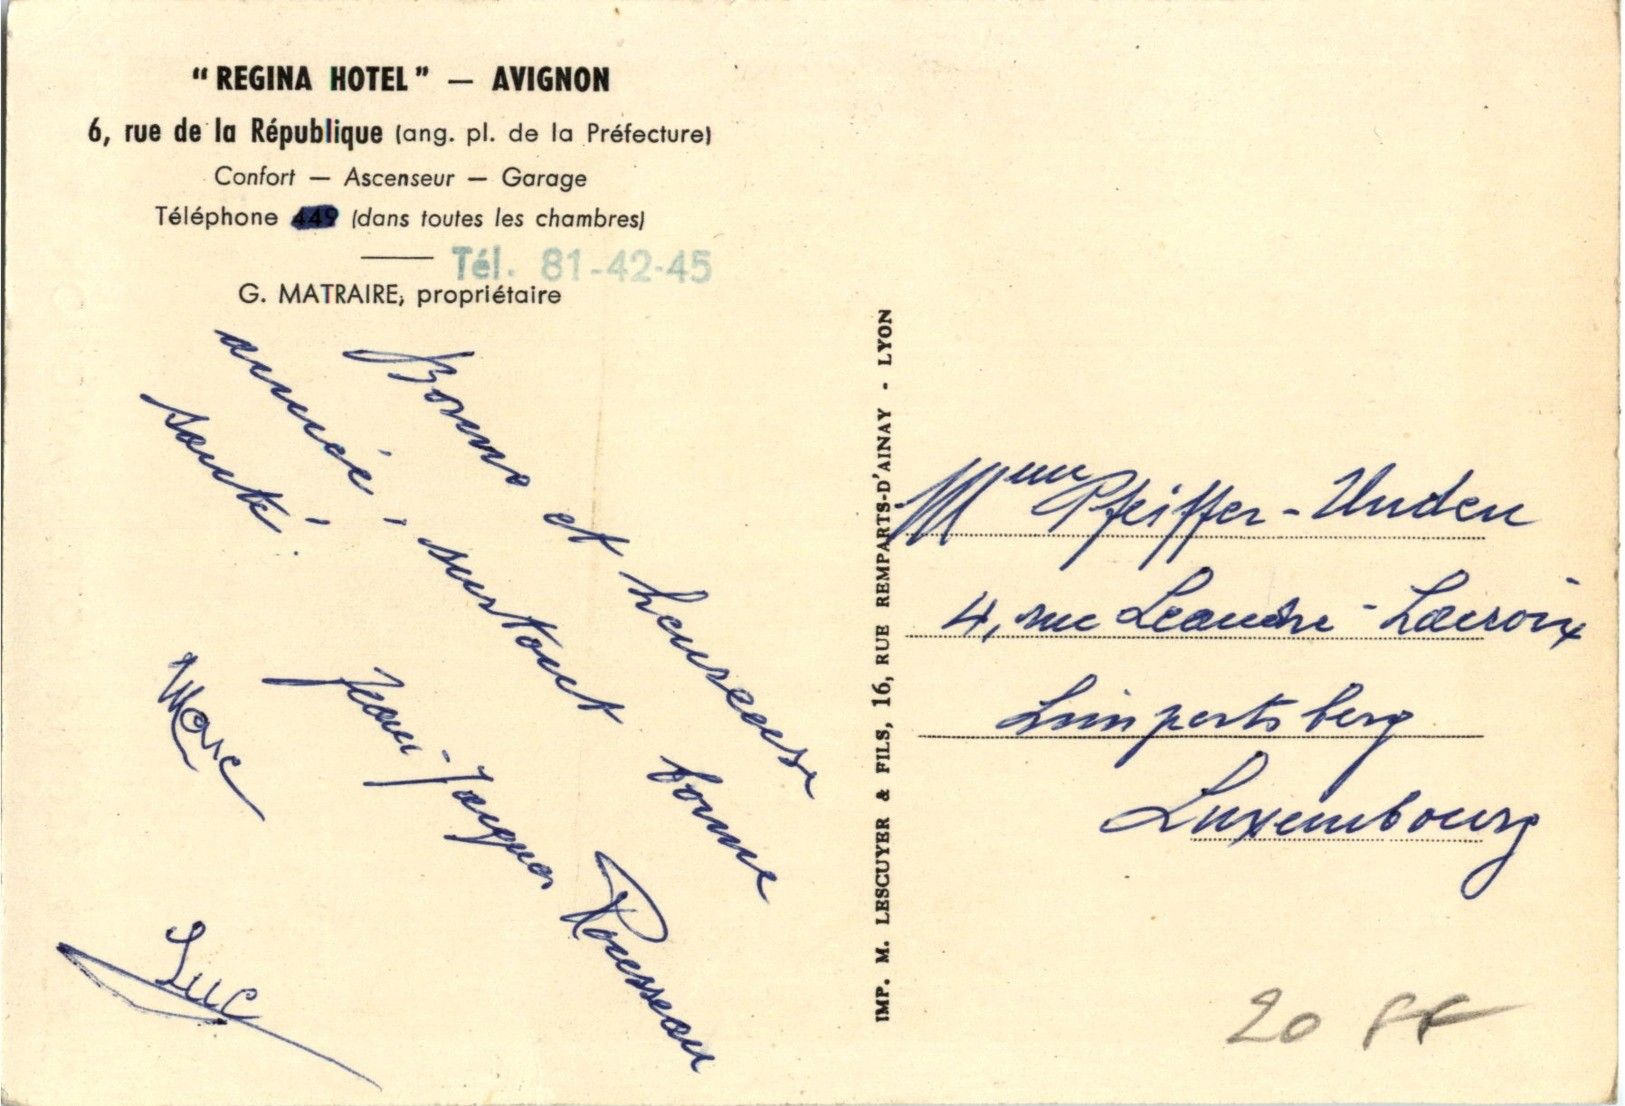 "REGINA HOTEL" — AVIGNON
6, rue de la République (ang. pl. de la Préfecture)
Confort — Ascenseur — Garage
Téléphone 449 (dans toutes les chambres)
Tél. 81-42-45
G. MATRAIRE, propriétaire
Bonne et heureuse
année, surtout bonne
santé!
Jean-Jacques Rousseau
Marc
Luc
IMP. M. LESCUYER & FILS, 16, RUE REMPARTS-D'AINAY - LYON
Mme Pfeiffer-Unden
4, rue Leandre-Lacroix
Limpertsberg
Luxembourg
20 FF